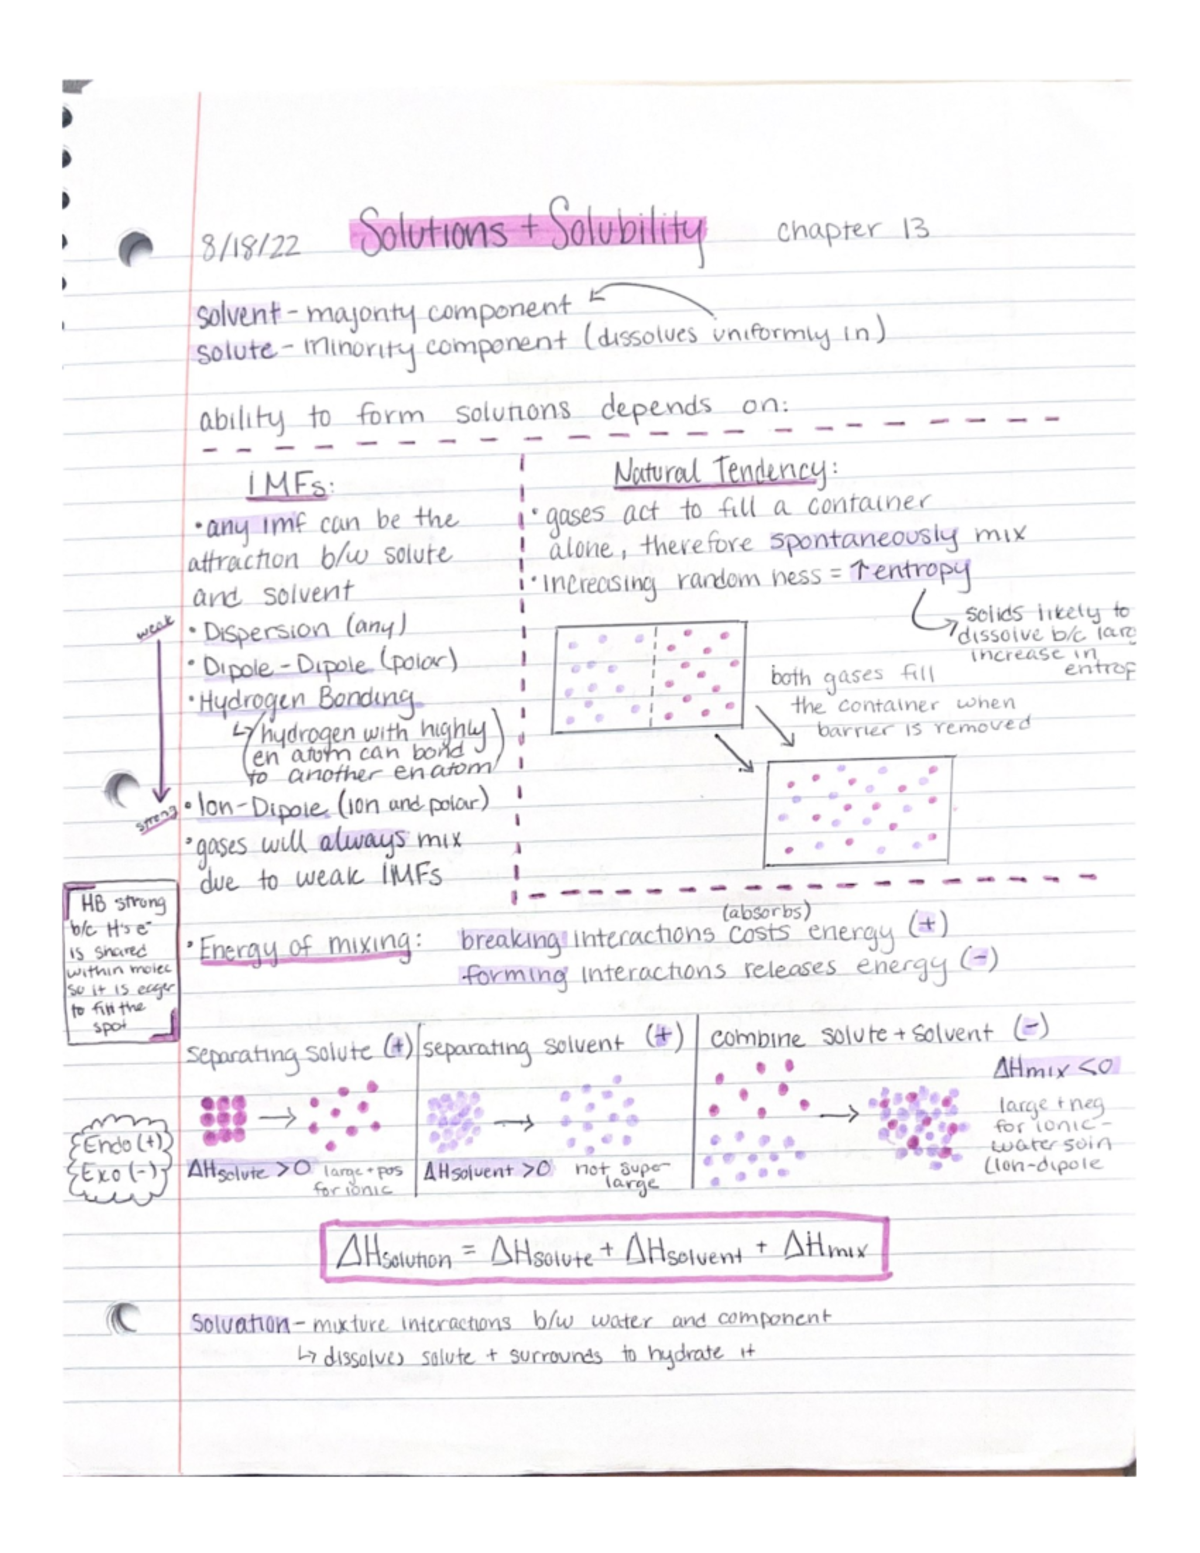 8/18/22 Solutions + Solubility chapter 13
solvent - majority component
solute - minority component (dissolves uniformly in)
ability to form solutions depends on:
IMFs:
• any imf can be the
attraction b/w solute
and solvent
weak
• Dispersion (any)
• Dipole-Dipole (polar)
• Hydrogen Bonding
↳ (hydrogen with highly
en atom can bond
to another en atom)
strong
• Ion-Dipole (ion and polar)
• gases will always mix
due to weak IMFs
Natural Tendency:
• gases act to fill a container
alone, therefore spontaneously mix
• increasing random ness = ↑entropy
solids likely to
dissolve b/c larg
increase in
entrop
both gases fill
the container when
barrier is removed
HB strong
b/c H's e⁻
is shared
within molec
so it is eager
to fill the
spot
• Energy of mixing: breaking interactions costs energy (+)
(absorbs)
forming interactions releases energy (-)
separating solute (+)
ΔHsolute >0 large + pos
for ionic
separating solvent (+)
ΔHsolvent >0 not super
large
combine solute + solvent (-)
ΔHmix <0
large + neg
for ionic-
water soln
(Ion-dipole
Endo (+)
Exo (-)
ΔHsolution = ΔHsolute + ΔHsolvent + ΔHmix
Solvation - mixture interactions b/w water and component
↳ dissolves solute + surrounds to hydrate it